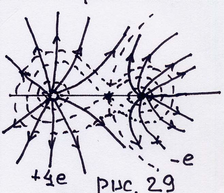 +4e
-e
рис. 29